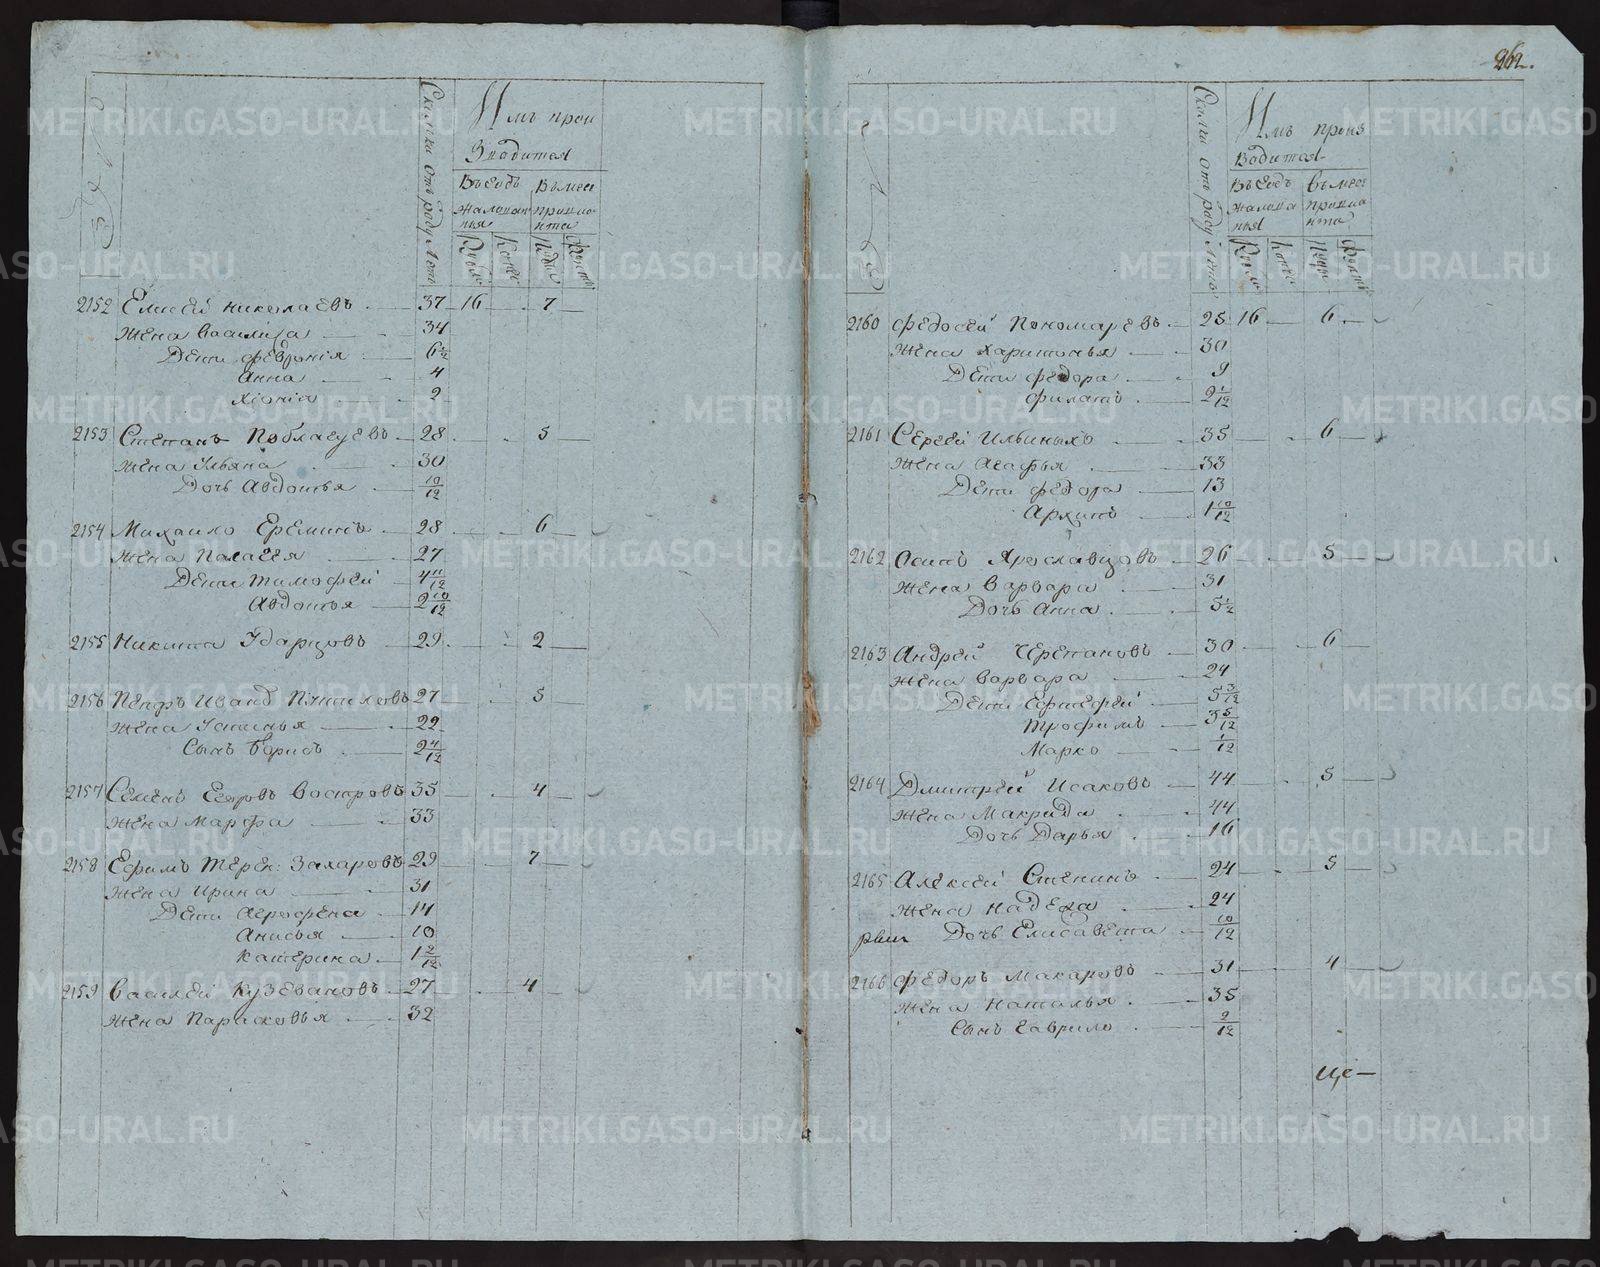 262.
Сколки отъ роду Летъ
Имъ прои
зводится
Въ Годъ
Жалованья
Вмест
провианта
Рубли
Копей
Пуды
Фунты
2152 Елисей Николаевъ 37 16 7
Жена Василиса 34
Дети Феврония 6 1/2
Анна 4
Хиония 2
2153 Степанъ Поблагуевъ 28 5
Жена Ульяна 30
Дочь Авдотья 10/12
2154 Михаило Ереминъ 28 6
Жена Палагея 27
Дети Тимофей 4 11/12
Авдотья 2 10/12
2155 Никита Ударцовъ 29 2
2156 Петръ Иванов 27 5
Жена Устинья 22
Сынъ Борисъ 2 4/12
2157 Семенъ Егоровъ Востровъ 35 4
Жена Марфа 33
2158 Ефимъ Терен: Захаровъ 29 7
Жена Ирина 31
Дети Агрофена 14
Анисья 10
Катерина 1 2/12
2159 Василей Кузевановъ 27 4
Жена Парасковья 32
Сколки отъ роду Летъ
Имъ произ
водится
Въ Годъ
Жалованья
Вмест
провианта
Рубли
Копей
Пуды
Фунты
2160 Федосей Пономаревъ 25 16 6
Жена Харитонья 30
Дети Федора 9
Филатъ 2 1/12
2161 Сергей Ильиныхъ 35 6
Жена Агафья 33
Дети Федора 13
Архипъ 1 10/12
2162 Осипъ Ярославцовъ 26 5
Жена Варвара 31
Дочь Анна 5 1/2
2163 Андрей Черепановъ 30 6
Жена Варвара 24
Дети 5 3/12
Трофимъ 3 5/12
Марко 1/12
2164 Дмитрей Исаковъ 44 5
Жена Макрида 44
Дочь Дарья 16
2165 Алексей Степинъ 24 5
Жена Надежа 24
Дочь Елисавета 10/12
2166 Федоръ Макаровъ 31 4
Жена Наталья 35
Сынъ Гаврило 2/12
Ще-
METRIKI.GASO-URAL.RU